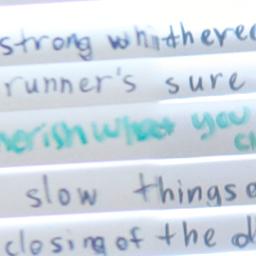 strong whithered
runner's sure
herish what you
cl
slow things
closing of the d